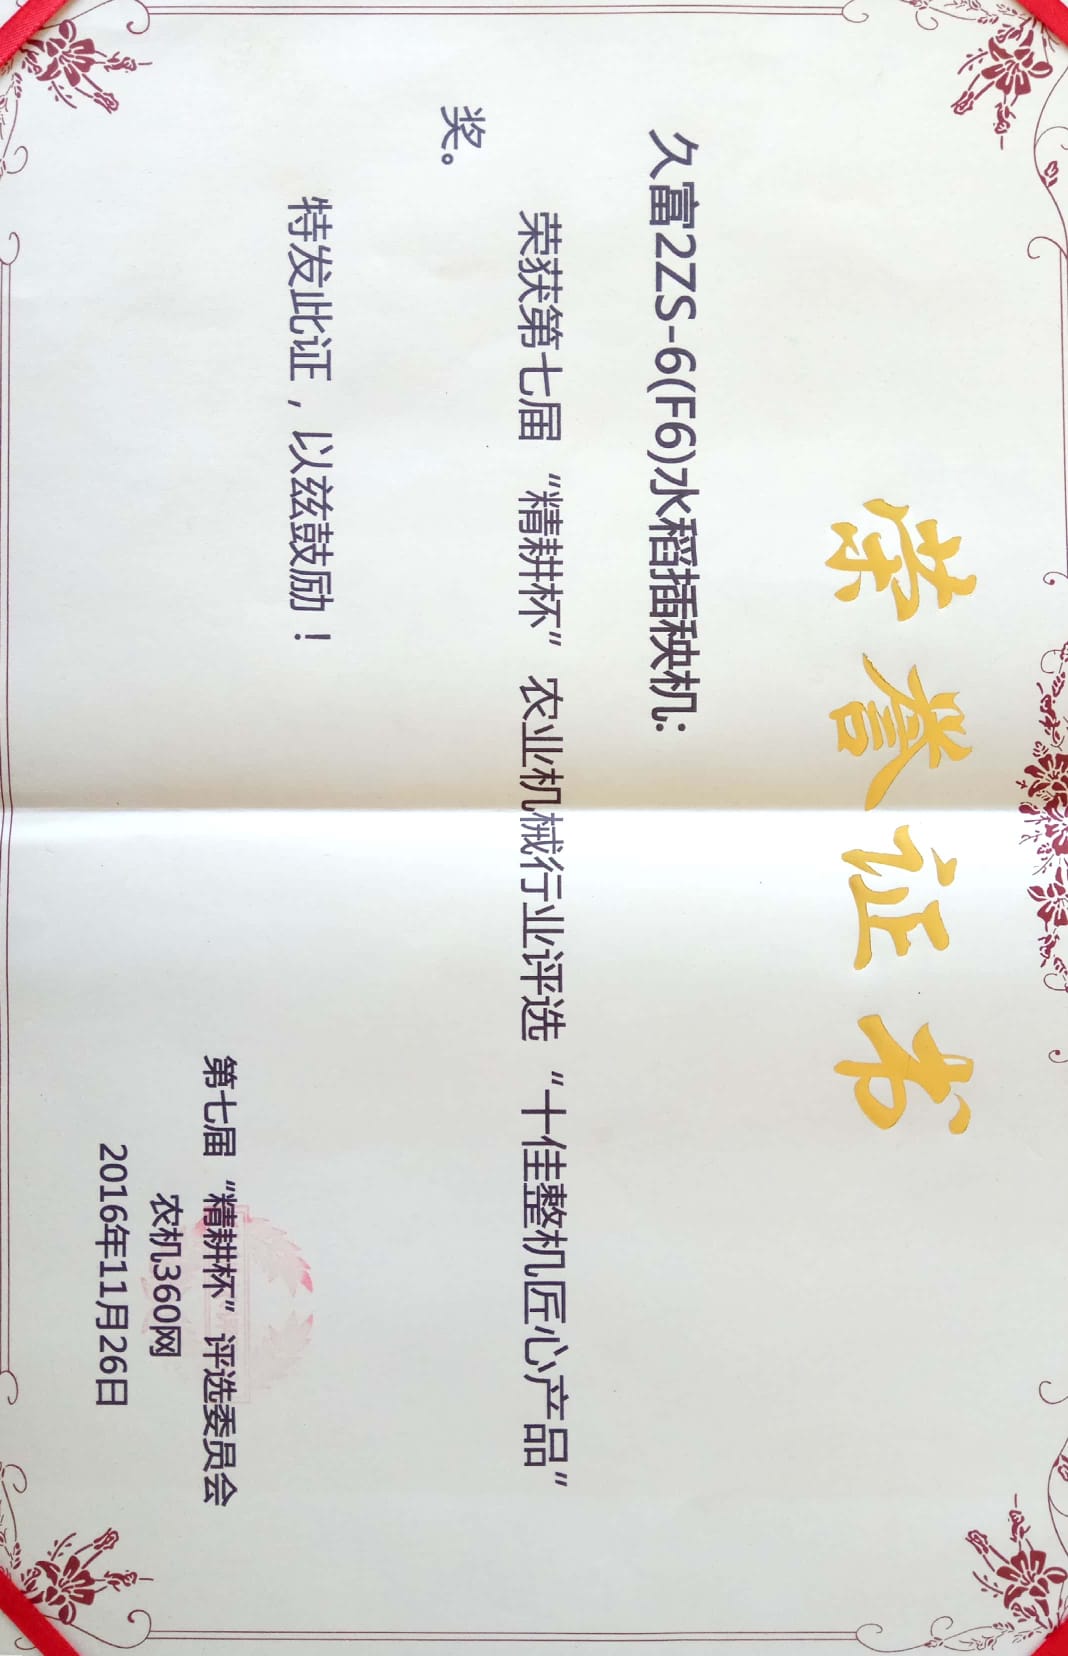 荣誉证书
久富2ZS-6(F6)水稻插秧机:
荣获第七届“精耕杯”农业机械行业评选“十佳整机匠心产品”
奖。
特发此证，以兹鼓励！
第七届“精耕杯”评选委员会
农机360网
2016年11月26日